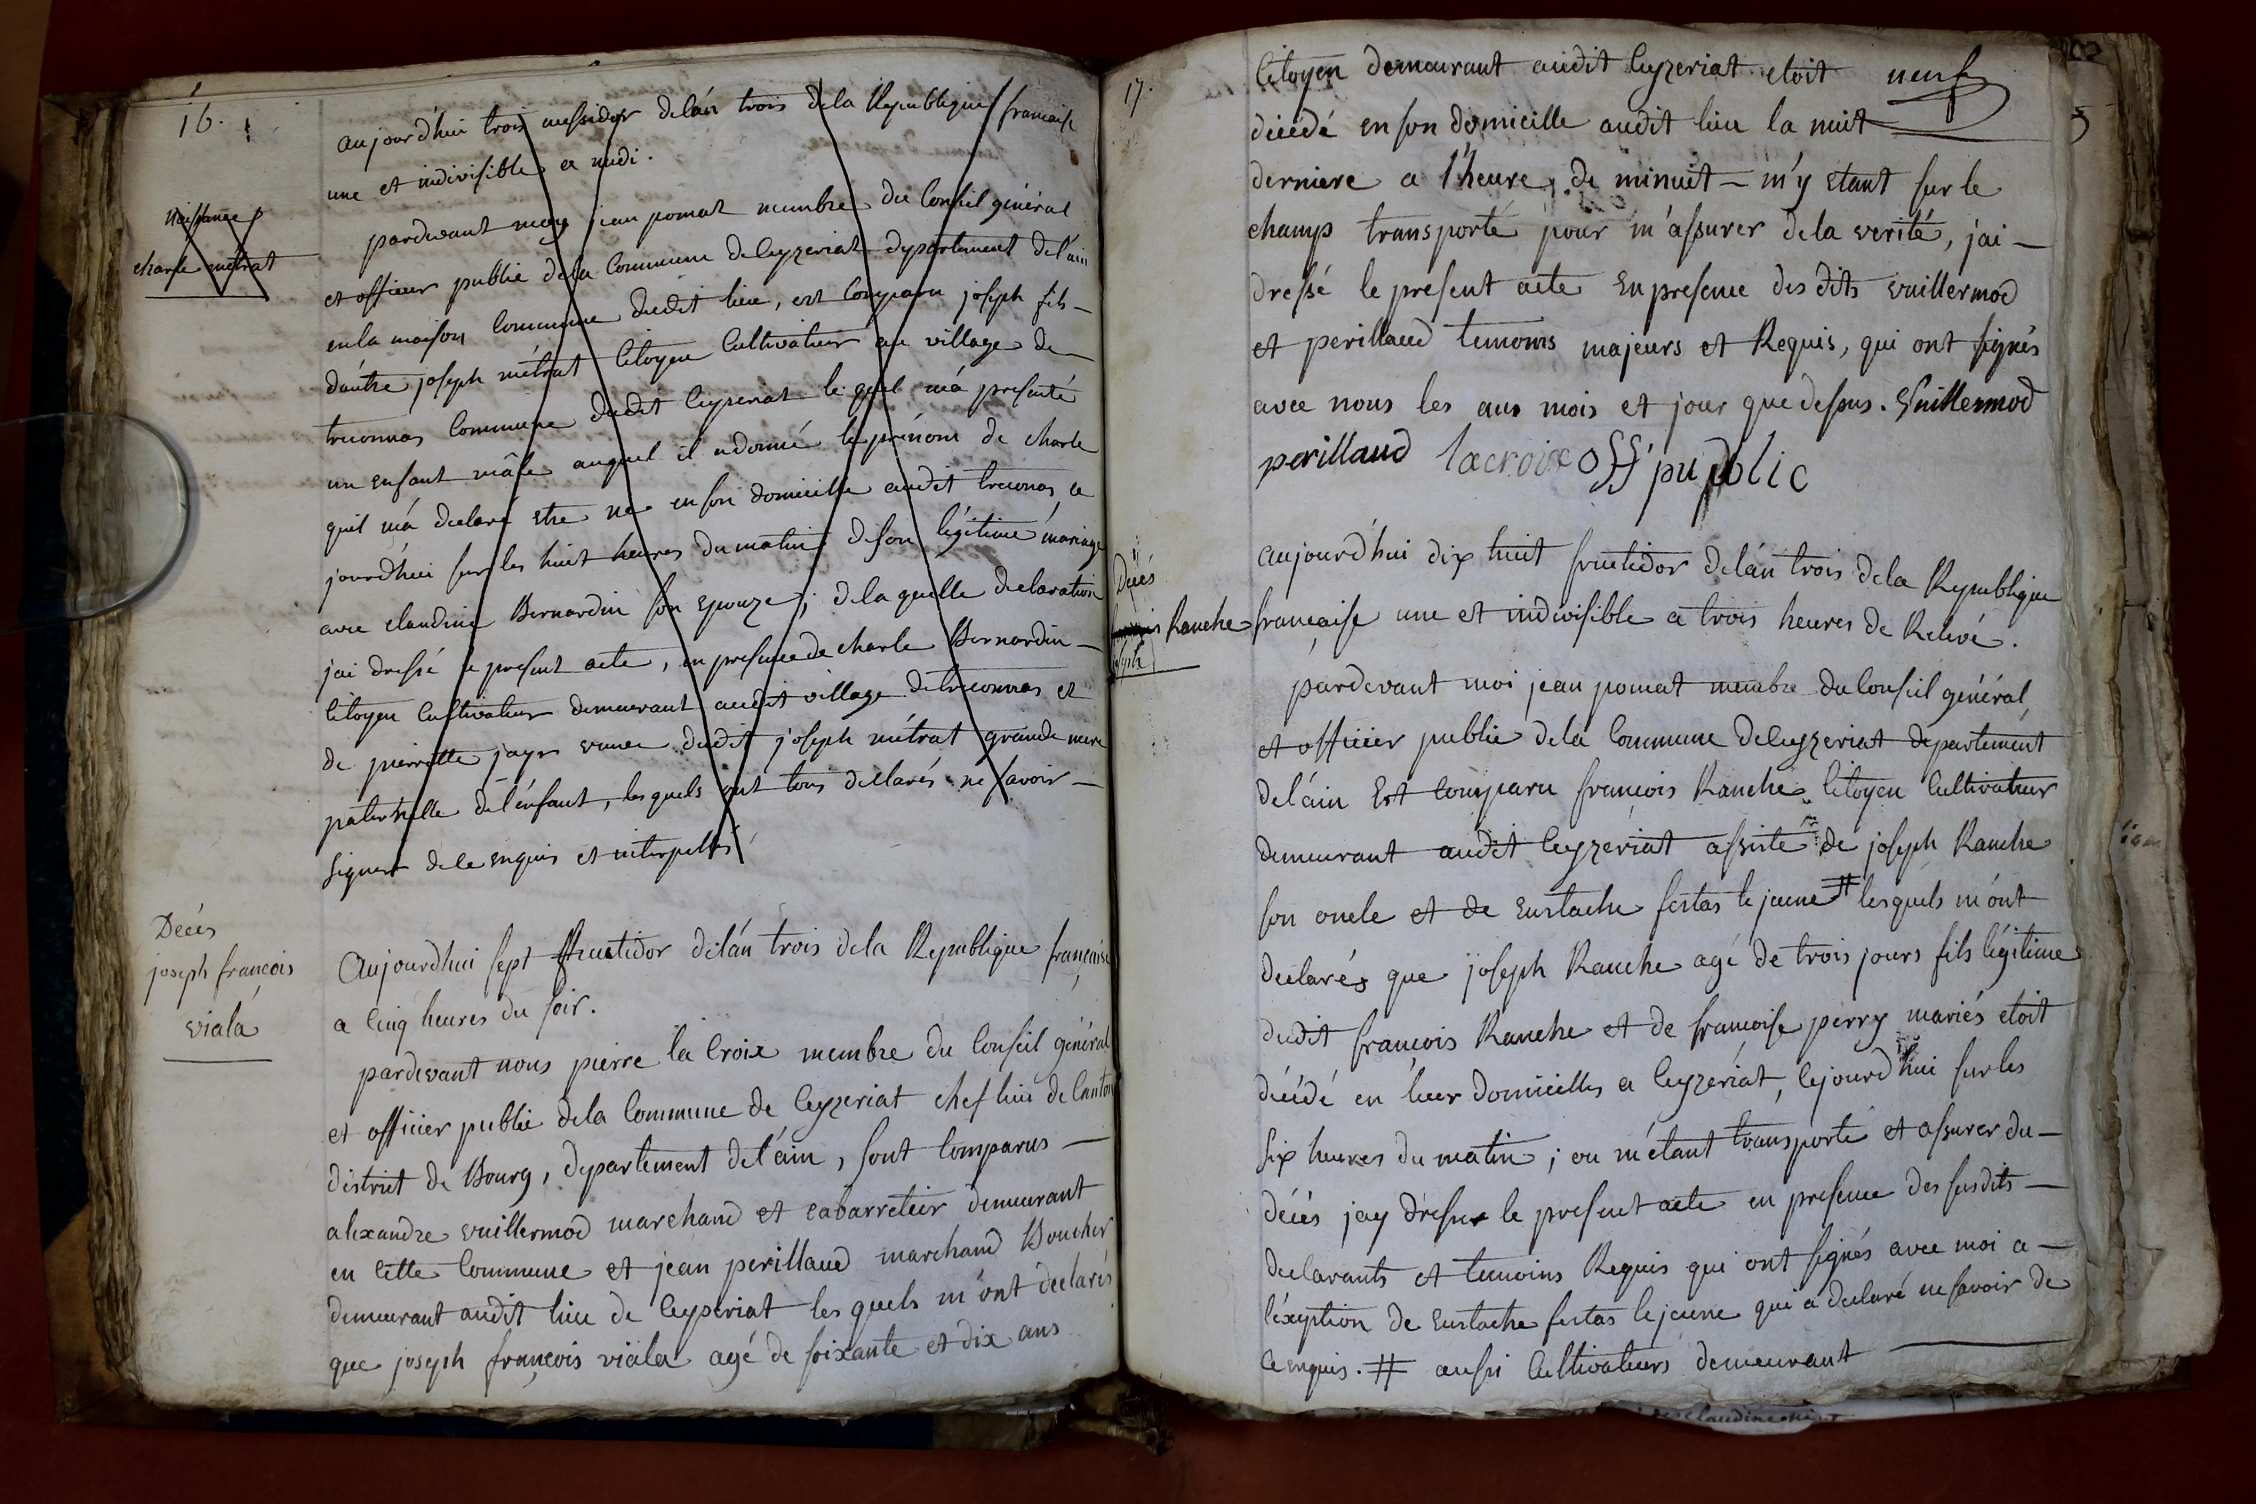 16.
aujourd'hui trois messidor delán trois dela Republique francaise
une et indivisible a midi.
Naissance
charle métrat
pardevant moy jean pomat membre du Conseil général
et officier public dela Commune deCeyzeriat departement deláin
enla maison Commune dudit lieu, est Comparu joseph fils –
dáutre joseph métrat Citoyen Cultivateur au village de –
treconnas Commune dudit Ceyzeriat le quel má presenté
un enfant mâle auquel il adonné le prénom de charle
quil má declaré etre né enson domicille audit treconas ce
jourd'hui sur les huit heures dumatin deson légitime mariage
avec claudine Bernardin son Epouze ; dela quelle declaration
jai dressé le present acte, en presence de charle Bernardin –
Citoyen Cultivateur demeurant audit village detreconnas et
de pierrette jayr veuve dudit joseph métrat grande mere
paternelle delénfant, lesquels ont tous declarés ne savoir –
signer dece enquis et interpellés
Décés
joseph francois
viala
Aujourdhui sept fructidor delán trois dela Republique francaise
a Cinq heures du soir.
pardevant nous pierre la Croix membre du Conseil général
et officier public dela Commune de Ceyzeriat chef lieu de Canton
district de Bourg, departement deláin, sont Comparus –
alexandre vuillermod marchand et cabarretier demeurant
en Cette Commune et jean perillaud marchand Boucher
demeurant audit lieu de Ceyseriat les quels m'ont declarés
que joseph françois viala agé de soixante et dix ans
17.
neuf
Citoyen demeurant audit Ceyzeriat etoit
décedé enson domicille audit lieu la nuit
derniere a l'heure de minuit – m'y etant sur le
champ transporté pour m'assurer dela verité, jai –
dressé le present acte en presence desdits vuillermod
et perillaud temoins majeurs et Requis, qui ont signés
avec nous les ans mois et jour que dessus. Vuillermod
perillaud lacroix off public
Décés
Ranche
joseph
aujourd'hui dix huit fructidor delán trois dela Republique
francaise une et indivisible a trois heures de Relevé.
pardevant moi jean pomat membre du Conseil général
et officier public dela Commune deCeyzeriat departement
deláin Est Comparu francois Ranche Citoyen Cultivateur
demeurant audit Ceyzériat assisté de joseph Ranche
son oncle et de Eustache fertas le jeune # lesquels mónt
declarés que joseph Ranche agé de trois jours fils légitime
dudit francois Ranche et de francoise perry mariés etoit
décédé en leur domicilles a Ceyzériat, cejourd'hui sur les
six heures du matin ; ou m'étant transporté et assurer du –
décés jay dresser le present acte en presence des susdits –
declarants et temoins Requis qui ont signés avec moi a –
léxeption de Eustache fertas lejeune qui a declaré ne savoir de
Ce enquis. # aussi Cultivateurs demeurant